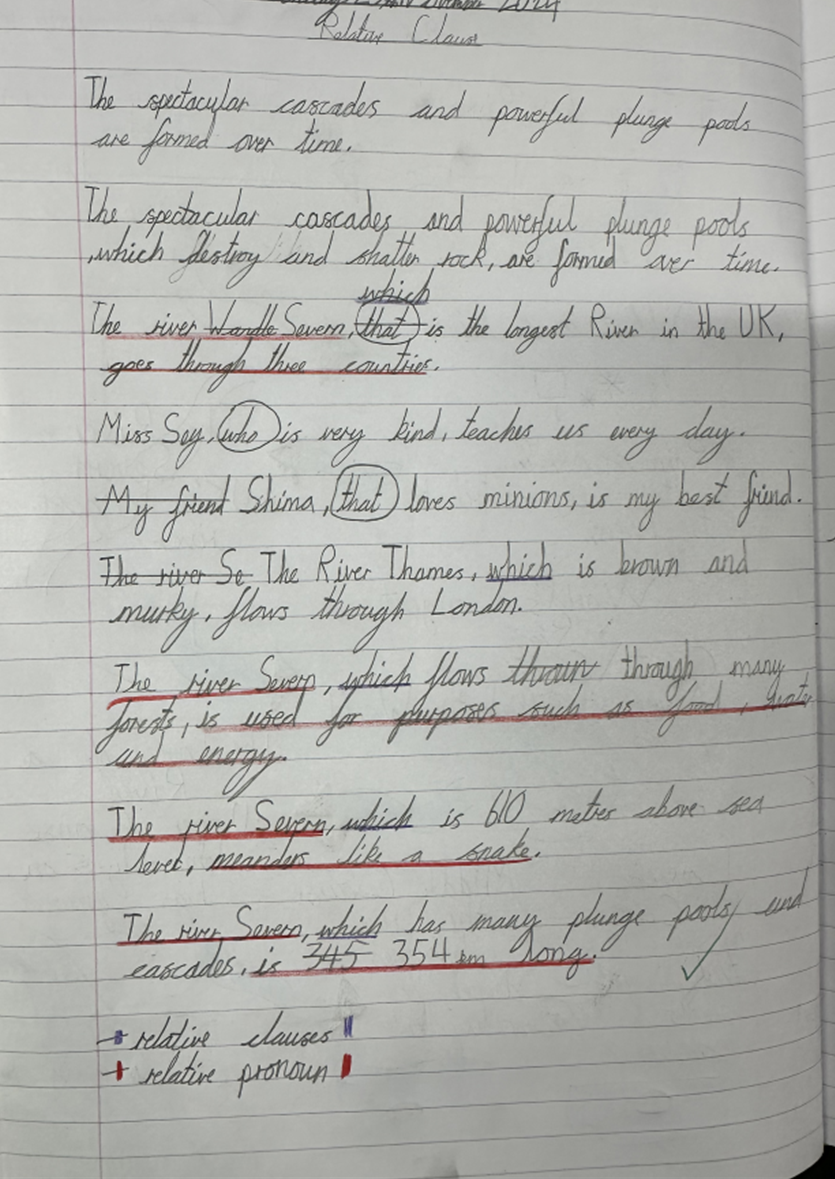 2024
Relative Clause
The spectacular cascades and powerful plunge pools
are formed over time.
The spectacular cascades and powerful plunge pools
,which destroy and shatter rock, are formed over time.
which
The river Wandle Severn, that is the longest River in the UK,
goes through three countries.
Miss Soy, who is very kind, teaches us every day.
My friend Shima, that loves minions, is my best friend.
The river Se The River Thames, which is brown and
murky, flows through London.
The river Severn, which flows through many
forests, is used for purposes such as food, water
and energy.
The river Severn, which is 610 metres above sea
level, meanders like a snake.
The river Severn, which has many plunge pools and
cascades, is 345 354 km long.
relative clauses
relative pronoun